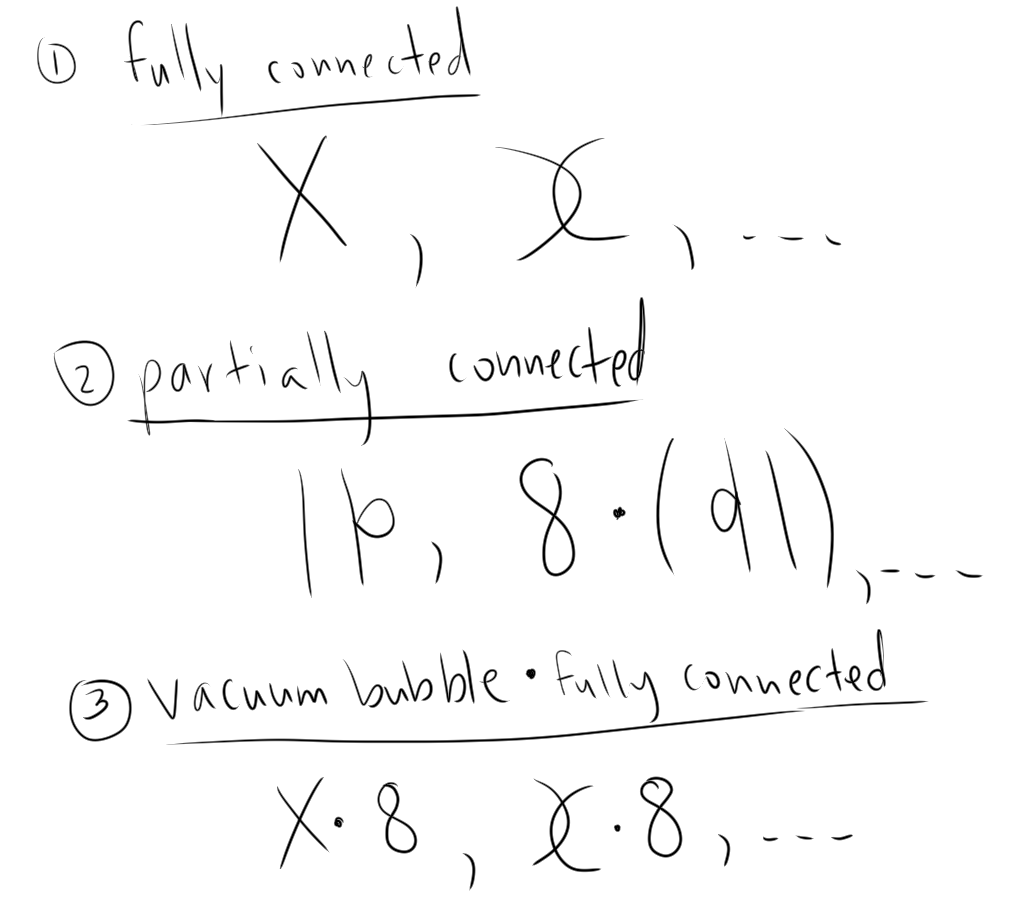 ① fully connected
X , X , ---
② partially connected
| p , 8 · ( q | ) , ---
③ vacuum bubble · fully connected
X · 8 , X · 8 , ---